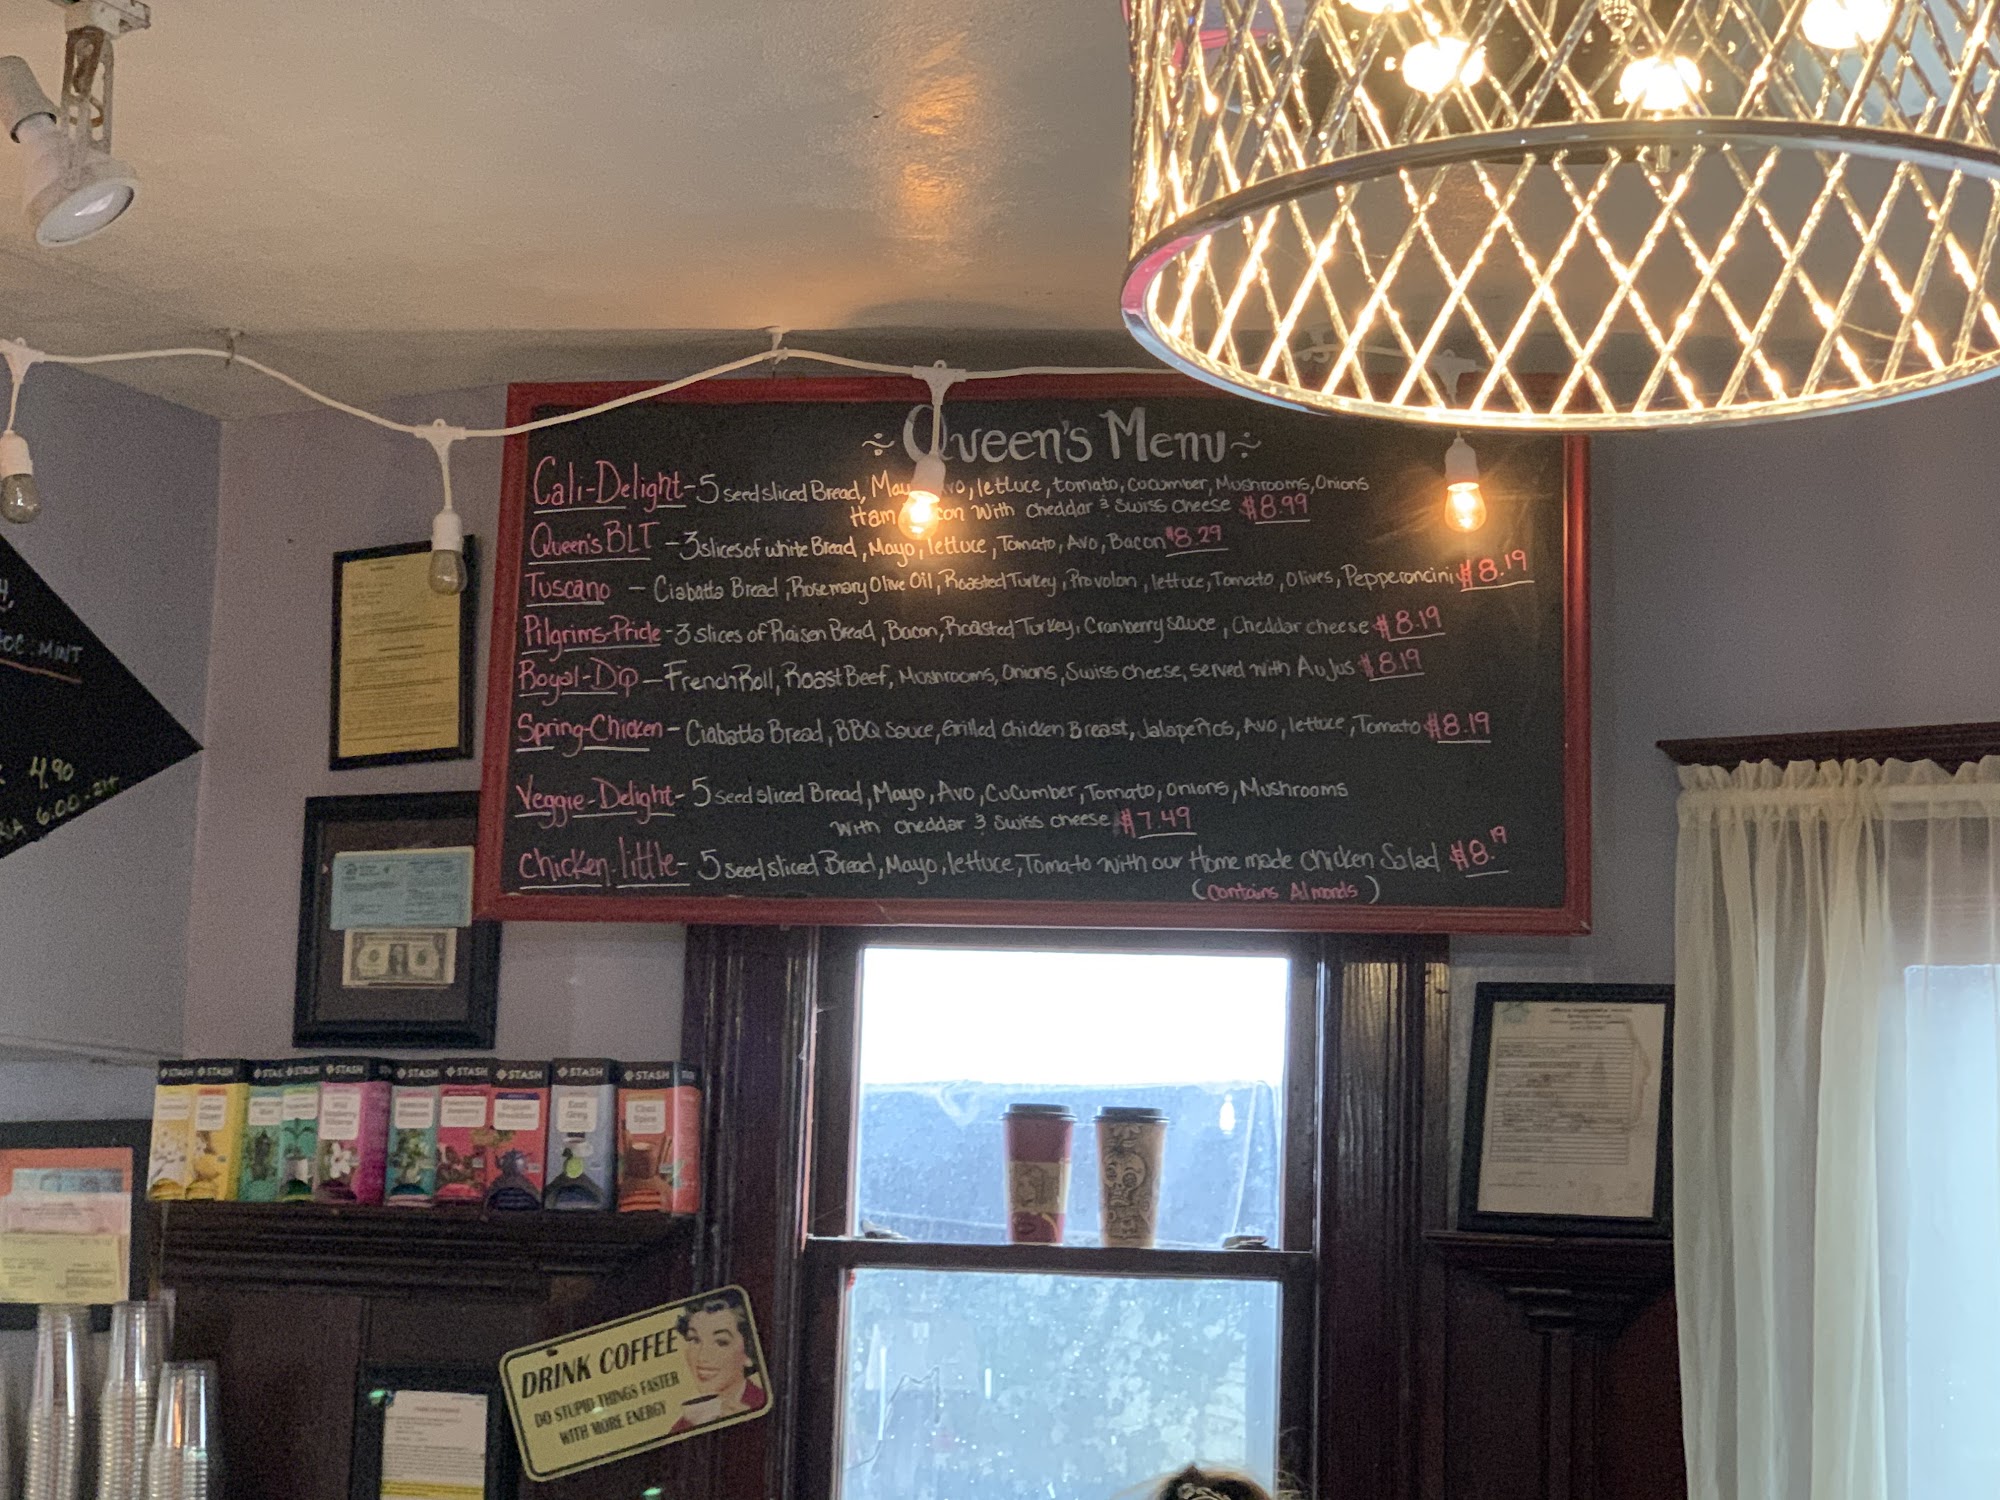 ~ Queen's Menu ~
Cali-Delight - 5 seed sliced Bread, Mayo, Avo, lettuce, tomato, Cucumber, Mushrooms, Onions
Ham Bacon With cheddar & Swiss cheese $8.99
Queen's BLT - 3 slices of white Bread, Mayo, lettuce, Tomato, Avo, Bacon $8.29
Tuscano - Ciabatta Bread, Rosemary Olive Oil, Roasted Turkey, Provolon, lettuce, Tomato, Olives, Pepperoncini $8.19
Pilgrims-Pride - 3 slices of Raisen Bread, Bacon, Roasted Turkey, Cranberry sauce, Cheddar cheese $8.19
Royal-Dip - French Roll, Roast Beef, Mushrooms, Onions, Swiss cheese, served with Au Jus $8.19
Spring-Chicken - Ciabatta Bread, BBQ Sauce, Grilled Chicken Breast, Jalapeños, Avo, lettuce, Tomato $8.19
Veggie-Delight - 5 seed sliced Bread, Mayo, Avo, Cucumber, Tomato, onions, Mushrooms
With cheddar & Swiss cheese $7.49
Chicken-little - 5 seed sliced Bread, Mayo, lettuce, Tomato with our Home made Chicken Salad $8.19
(Contains Almonds)
MINT
4.90
6.00
STASH STASH STASH STASH STASH STASH STASH STASH STASH
Earl Grey
Chai Spice
DRINK COFFEE
DO STUPID THINGS FASTER
WITH MORE ENERGY